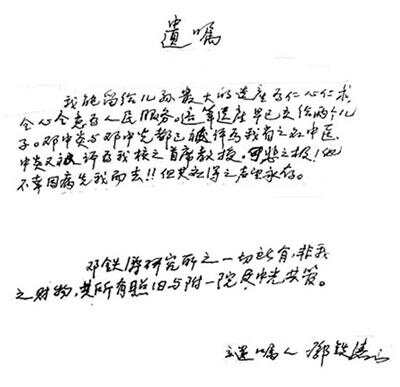 遗嘱
我能留给儿孙最大的遗产为仁心仁术
全心全意为人民服务。这笔遗产早已交给两个儿
子。邓中炎与邓中光都已被评为我省之名中医,
中炎又被评为我校之首席教授。可悲之极!他
不幸因病先我而去!!但其得之名望永存。
邓铁涛研究所之一切所有,非我
之财物,其所有照旧与附一院及中光共管。
立遗嘱人 邓铁涛